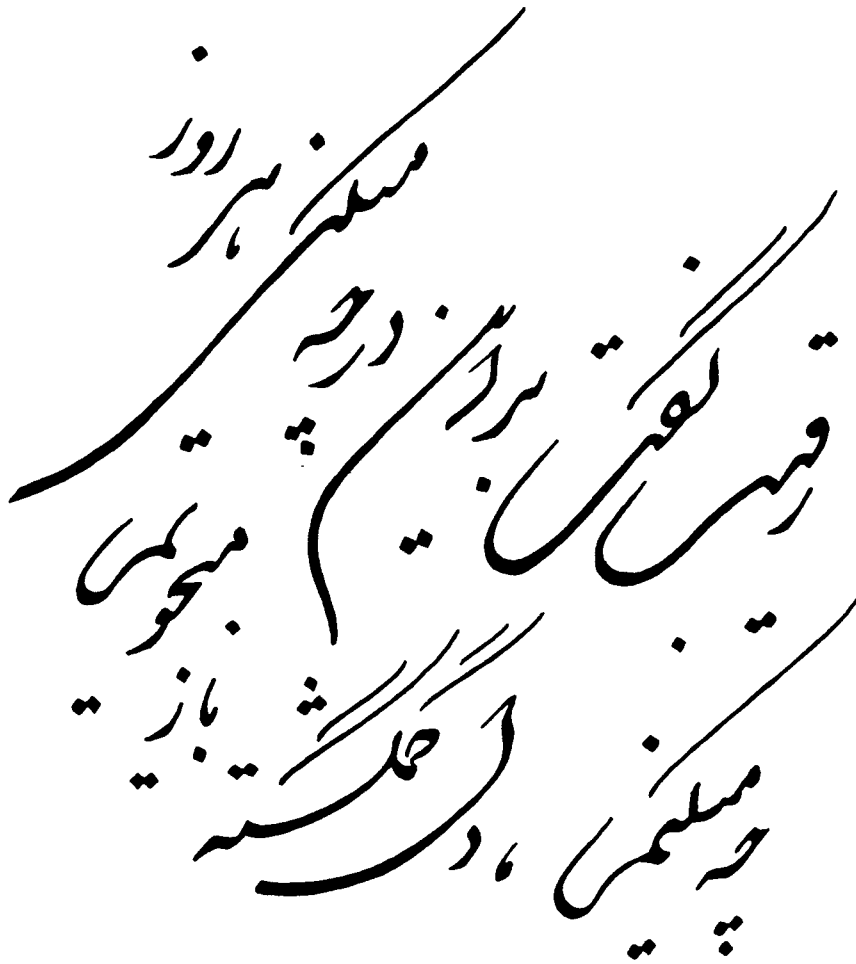 رقیب گفت براین در چه میکنی هر روز
چه میکنم دل گمگشته باز میجویم